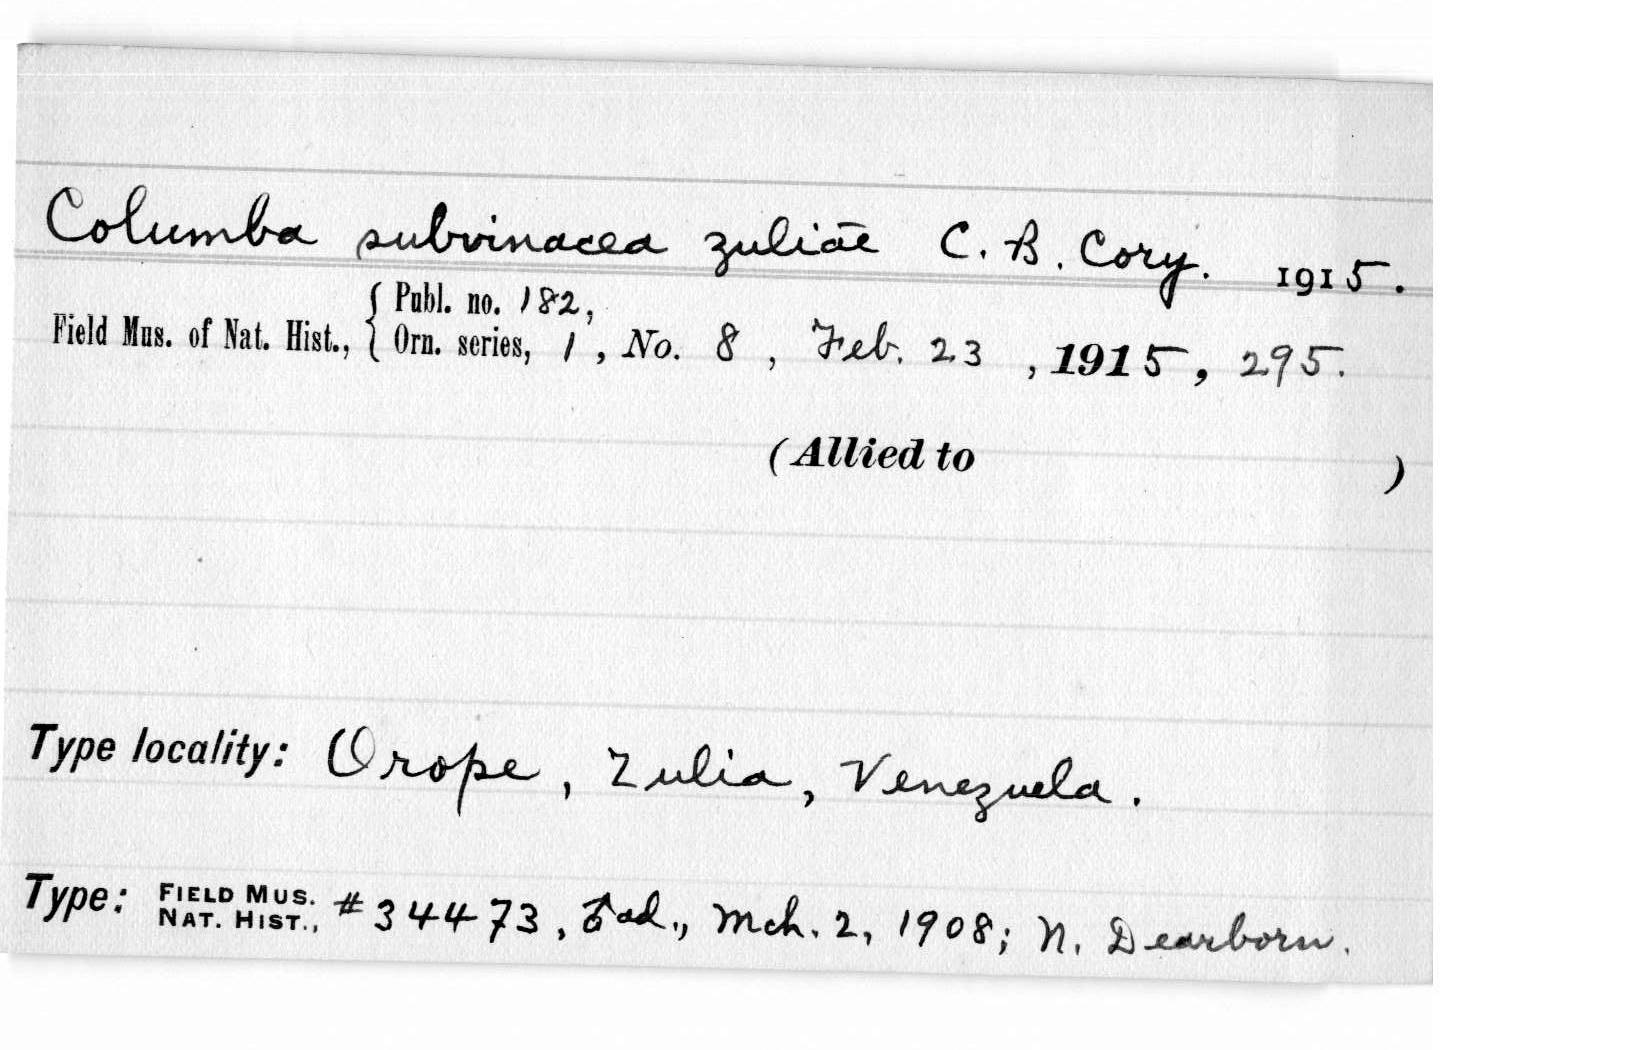 Columba subvinacea zuliae C. B. Cory. 1915.
Field Mus. of Nat. Hist., { Publ. no. 182,
Orn. series, 1, No. 8, Feb. 23, 1915, 295.
(Allied to )
Type locality: Orope, Zulia, Venezuela.
Type: FIELD MUS. NAT. HIST., #34473, ♂ ad., Mch. 2, 1908; N. Dearborn.